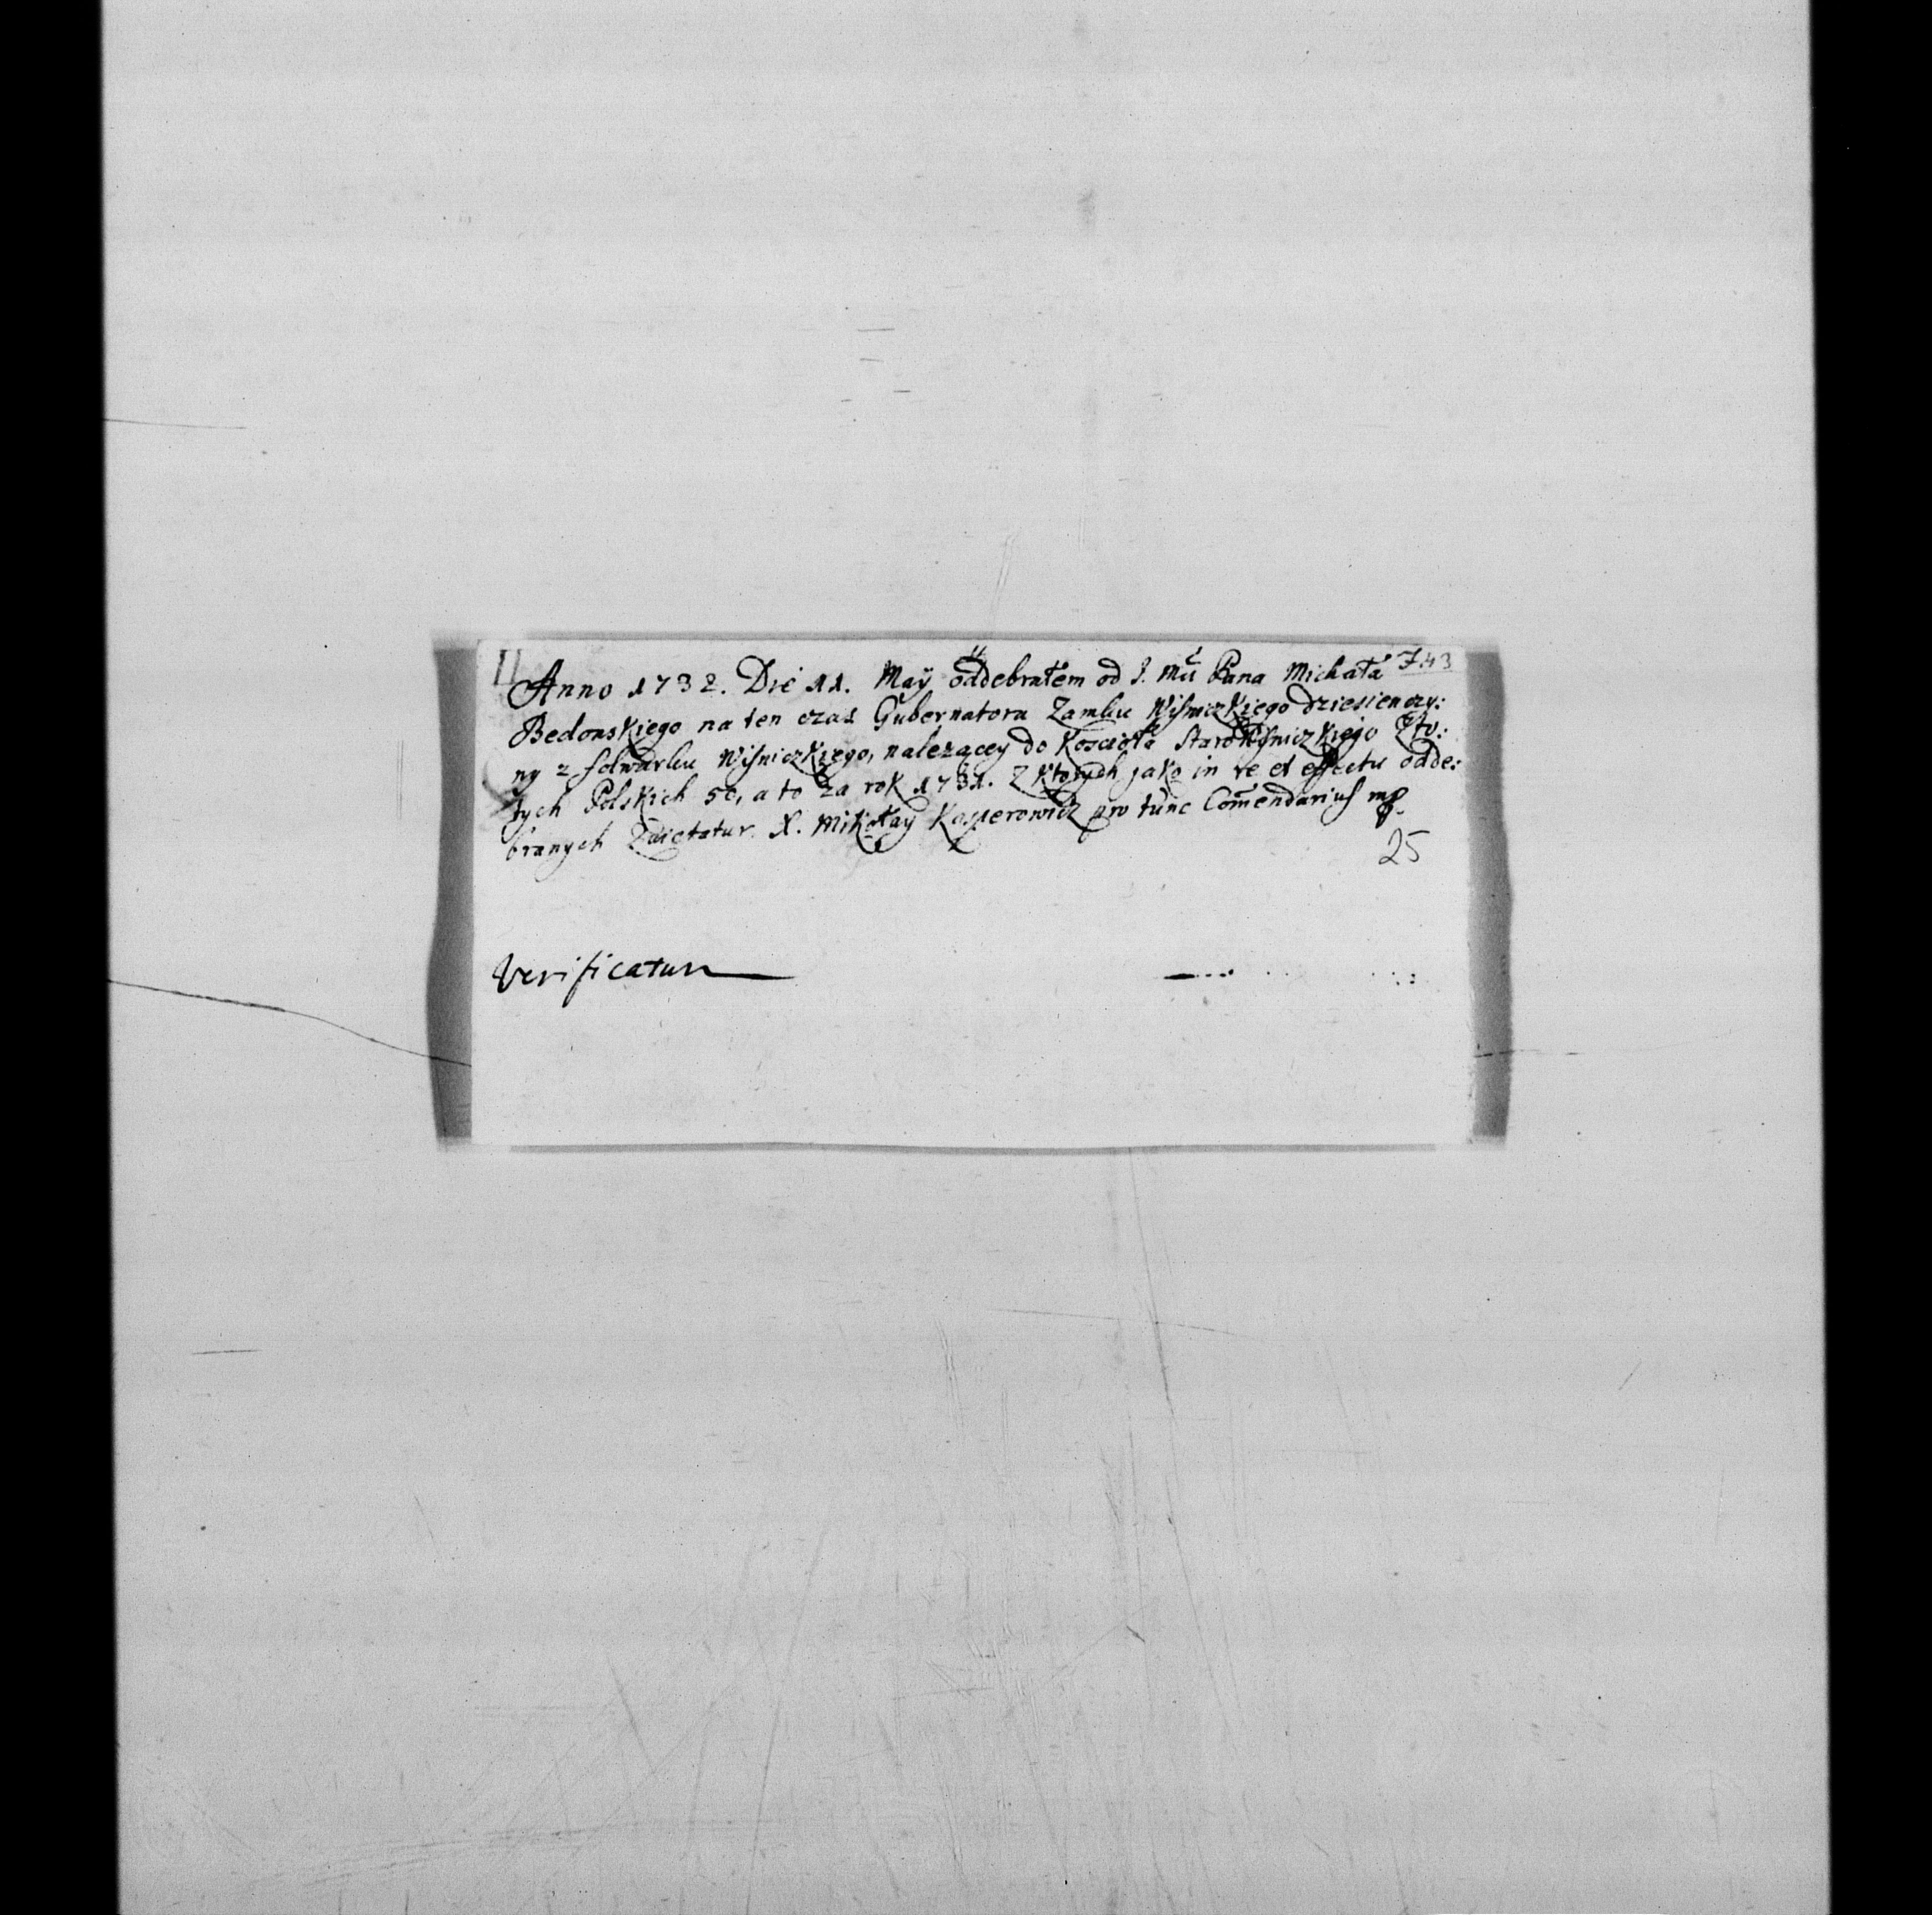 11 743
Anno 1732. Die 11. Maÿ oddebrałem od J. Mci Pana Michała
Bedonskiego na ten czas Gubernatora Zamku Wisnickiego dziesienczy:
ny z folwarku Wisniczkiego, nalezącey do Koscioła Staro Wisniczkiego Zło:
tych Polskich 50, a to za rok 1731. z ktorych jako in re et effectu odde:
branych X. Mikołay Kosperowicz pro tunc Com̃endarius mp.
25
Verificatum